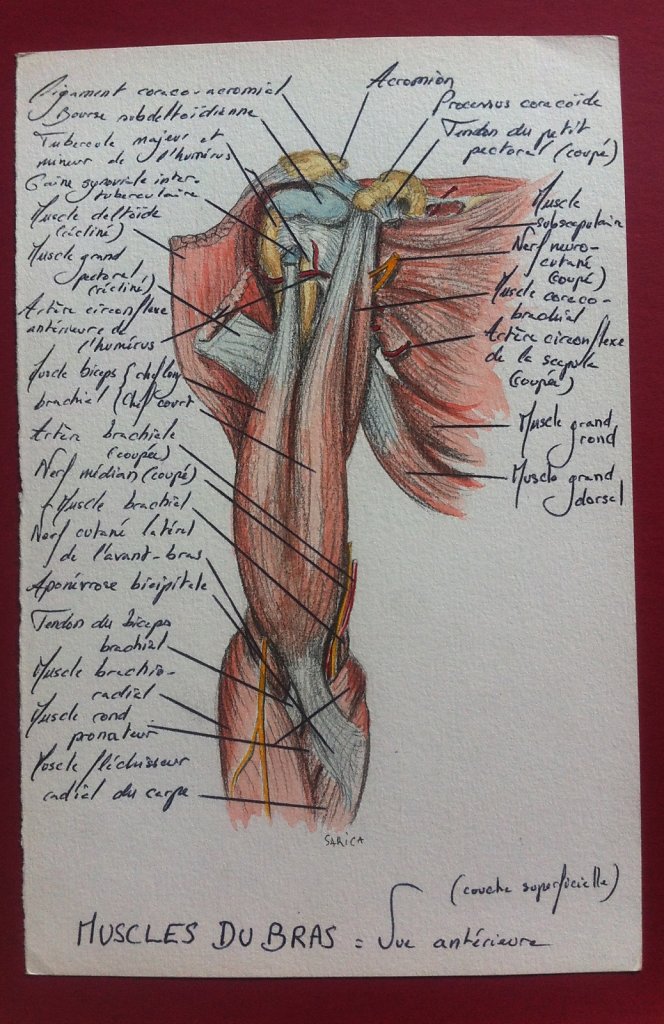 Ligament coraco-acromial
Bourse subdeltoïdienne
Tubercule majeur et
mineur de l'humérus
Gaine synoviale inter-
tuberculaire
Muscle deltoïde
(récliné)
Muscle grand
pectoral (récliné)
Artère circonflexe
antérieure de
l'humérus
Muscle biceps { chef long
brachial { chef court
Artère brachiale
(coupée)
Nerf médian (coupé)
Muscle brachial
Nerf cutané latéral
de l'avant-bras
Aponévrose bicipitale
Tendon du biceps
brachial
Muscle brachio-
radial
Muscle rond
pronateur
Muscle fléchisseur
radial du carpe
Acromion
Processus coracoïde
Tendon du petit
pectoral (coupé)
Muscle
subscapulaire
Nerf musculo-
cutané
(coupé)
Muscle coraco-
brachial
Artère circonflexe
de la scapula
(coupée)
Muscle grand
rond
Muscle grand
dorsal
SARICA
(couche superficielle)
MUSCLES DU BRAS = Vue antérieure